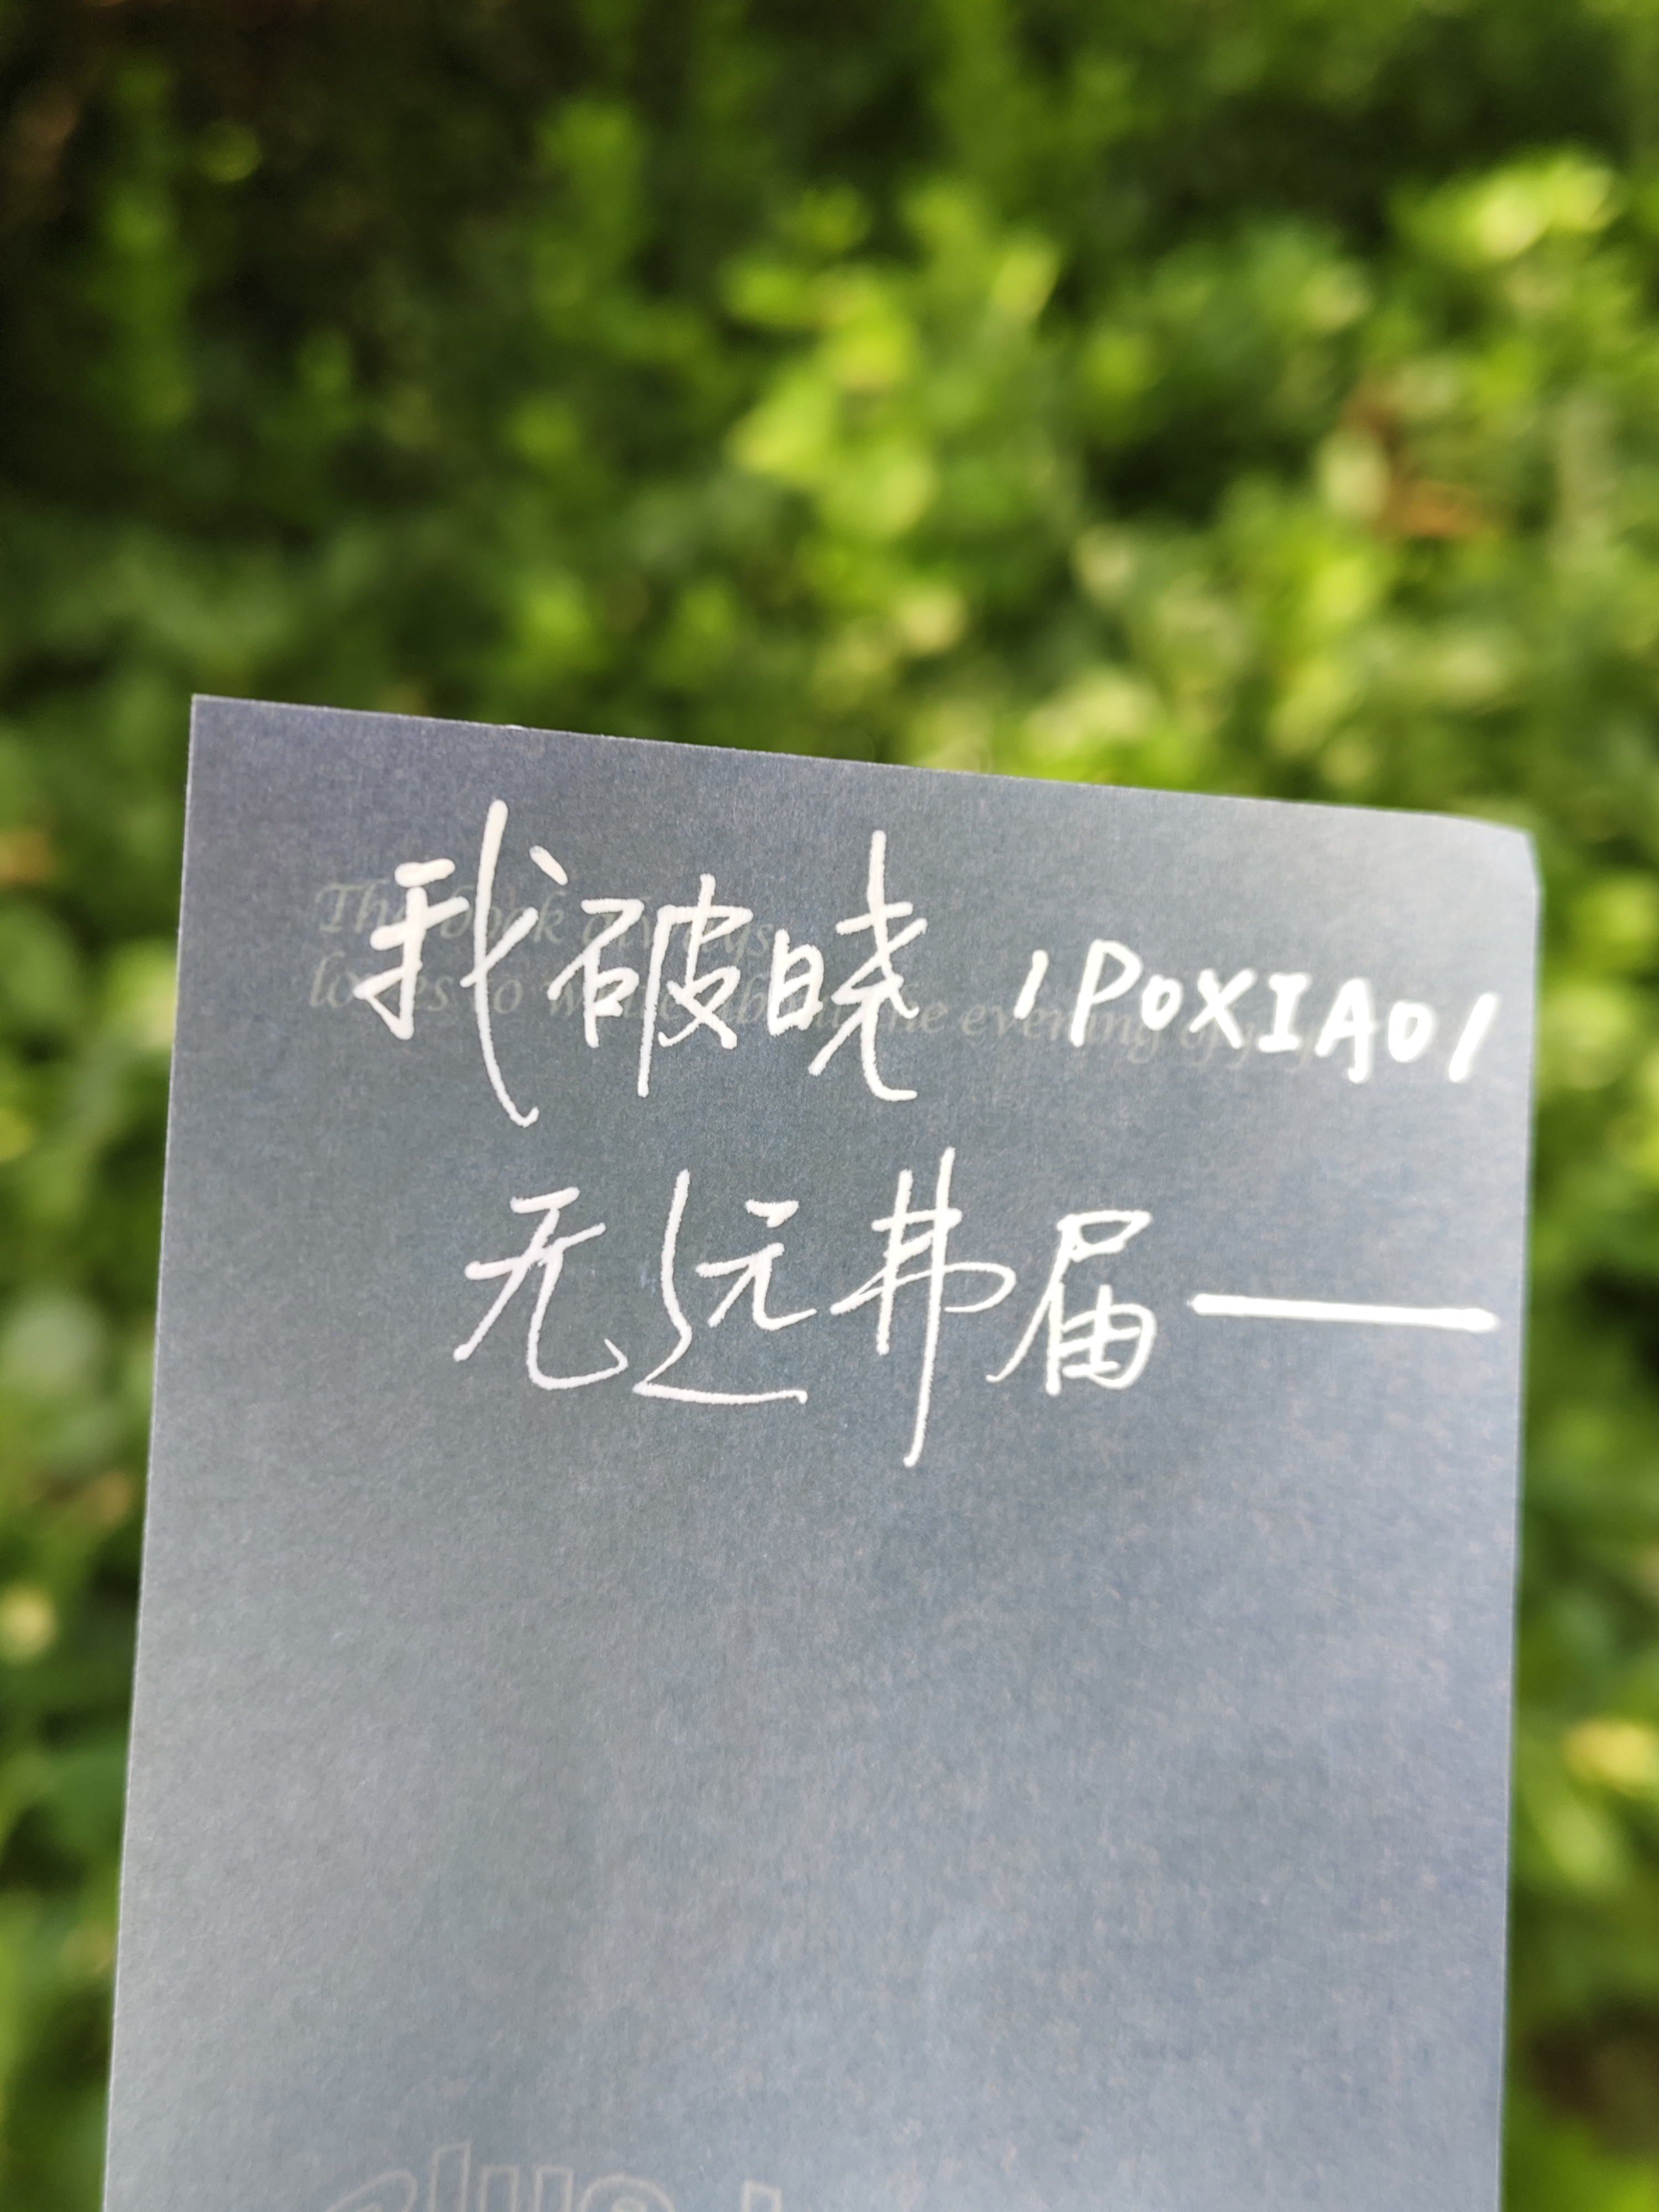 我破晓 /POXIAO/
The book always
loves to write about the evening
无远弗届—